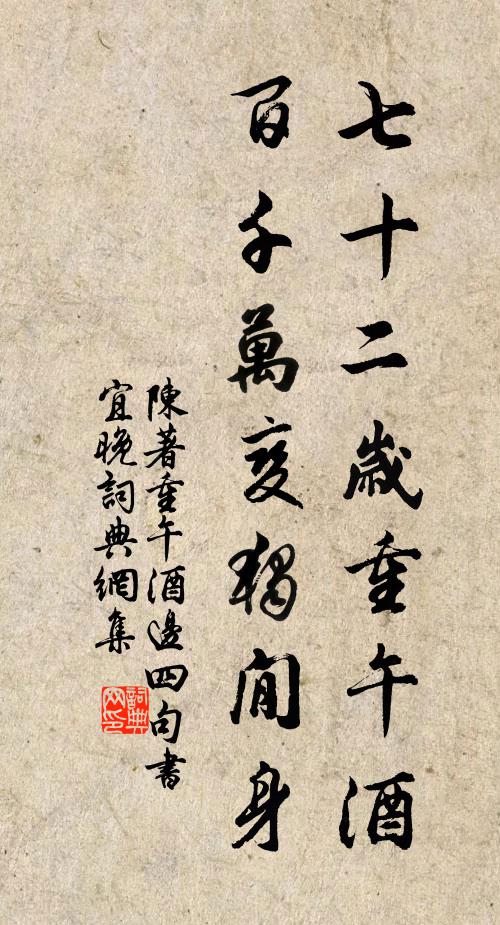 七十二歲重午酒
百千萬變獨閒身
陳著重午酒邊四句書
宜晚詞典網集
詞典网印